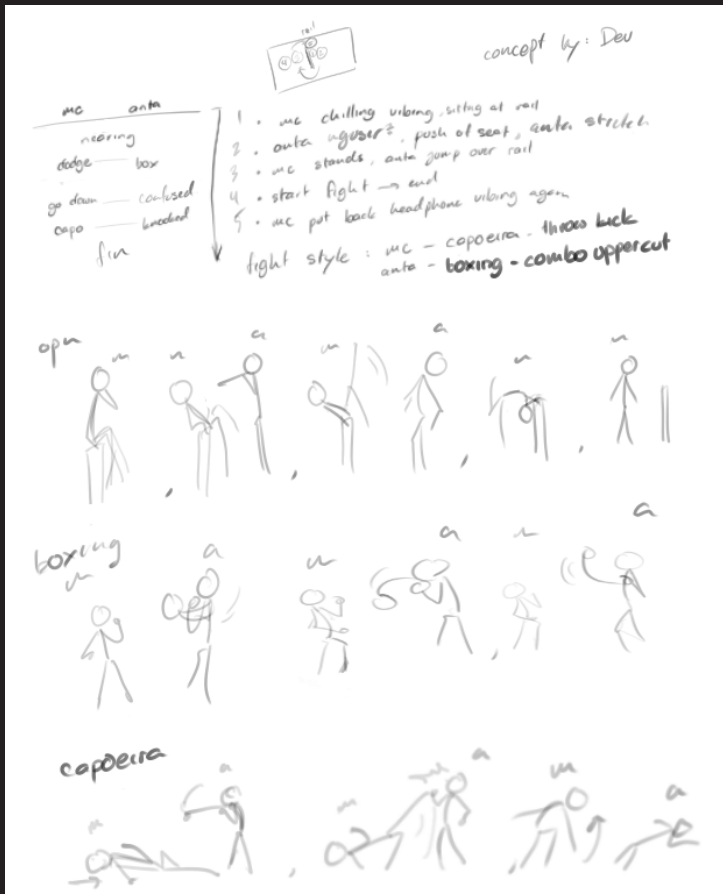 rail
concept by: Dev
mc anta
nearing
dodge — box
go down — confused
capo — knocked
fin
1 • mc chilling vibing, sitting at rail
2 • anta nguser?, push of seat, anta stretch
3 • mc stands, anta jump over rail
4 • start fight → end
5 • mc put back headphone vibing again
fight style : mc - capoeira - throw kick
anta - boxing - combo uppercut
opn
m m a m a m m
boxing
m a m a m a
capoeira
m a m a m a